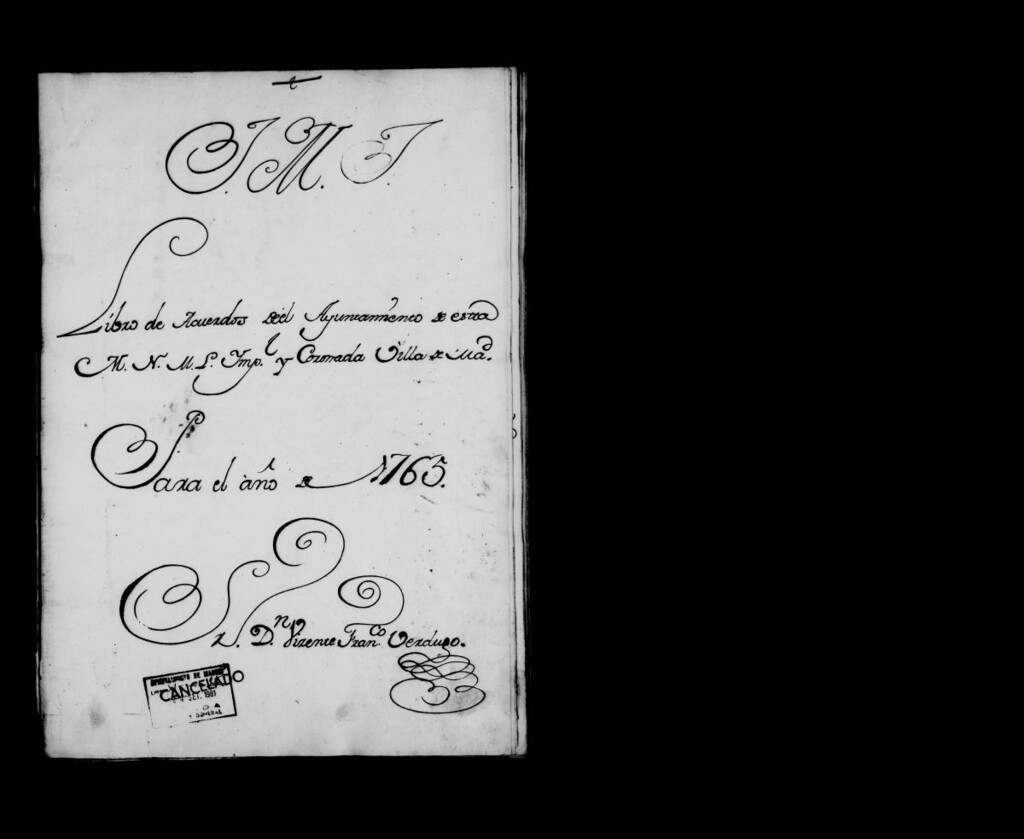 J. M. J.
Libro de Acuerdos del Ayuntamiento de esta
M. N. M. L. Imp.l y Coronada Villa de Mad.
Para el año de 1765.
Sr. Dn. Vizente Franco Verdugo.
AYUNTAMIENTO DE MADRID
CANCELADO
SET. 1981